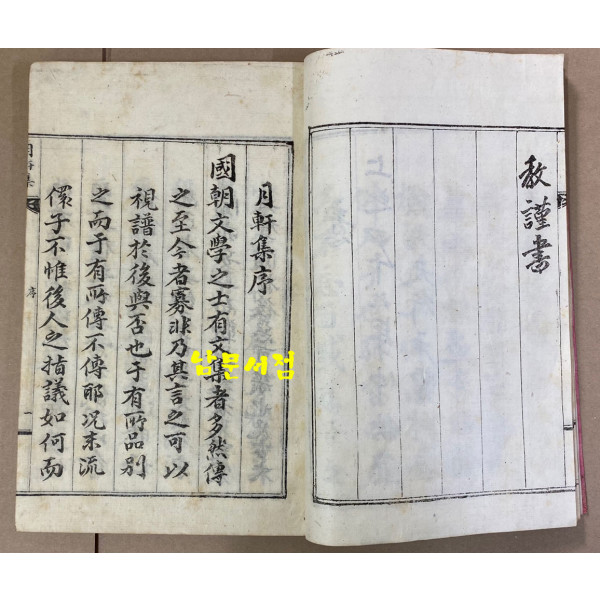 敎謹書
月軒集序
國朝文學之士有文集者多然傳
之至今者寡非乃其言之可以
視譜於後與否也于有所品别
之而于有所傳不傳耶况末流
儇子不惟後人之指議如何而
序
一
남문서점